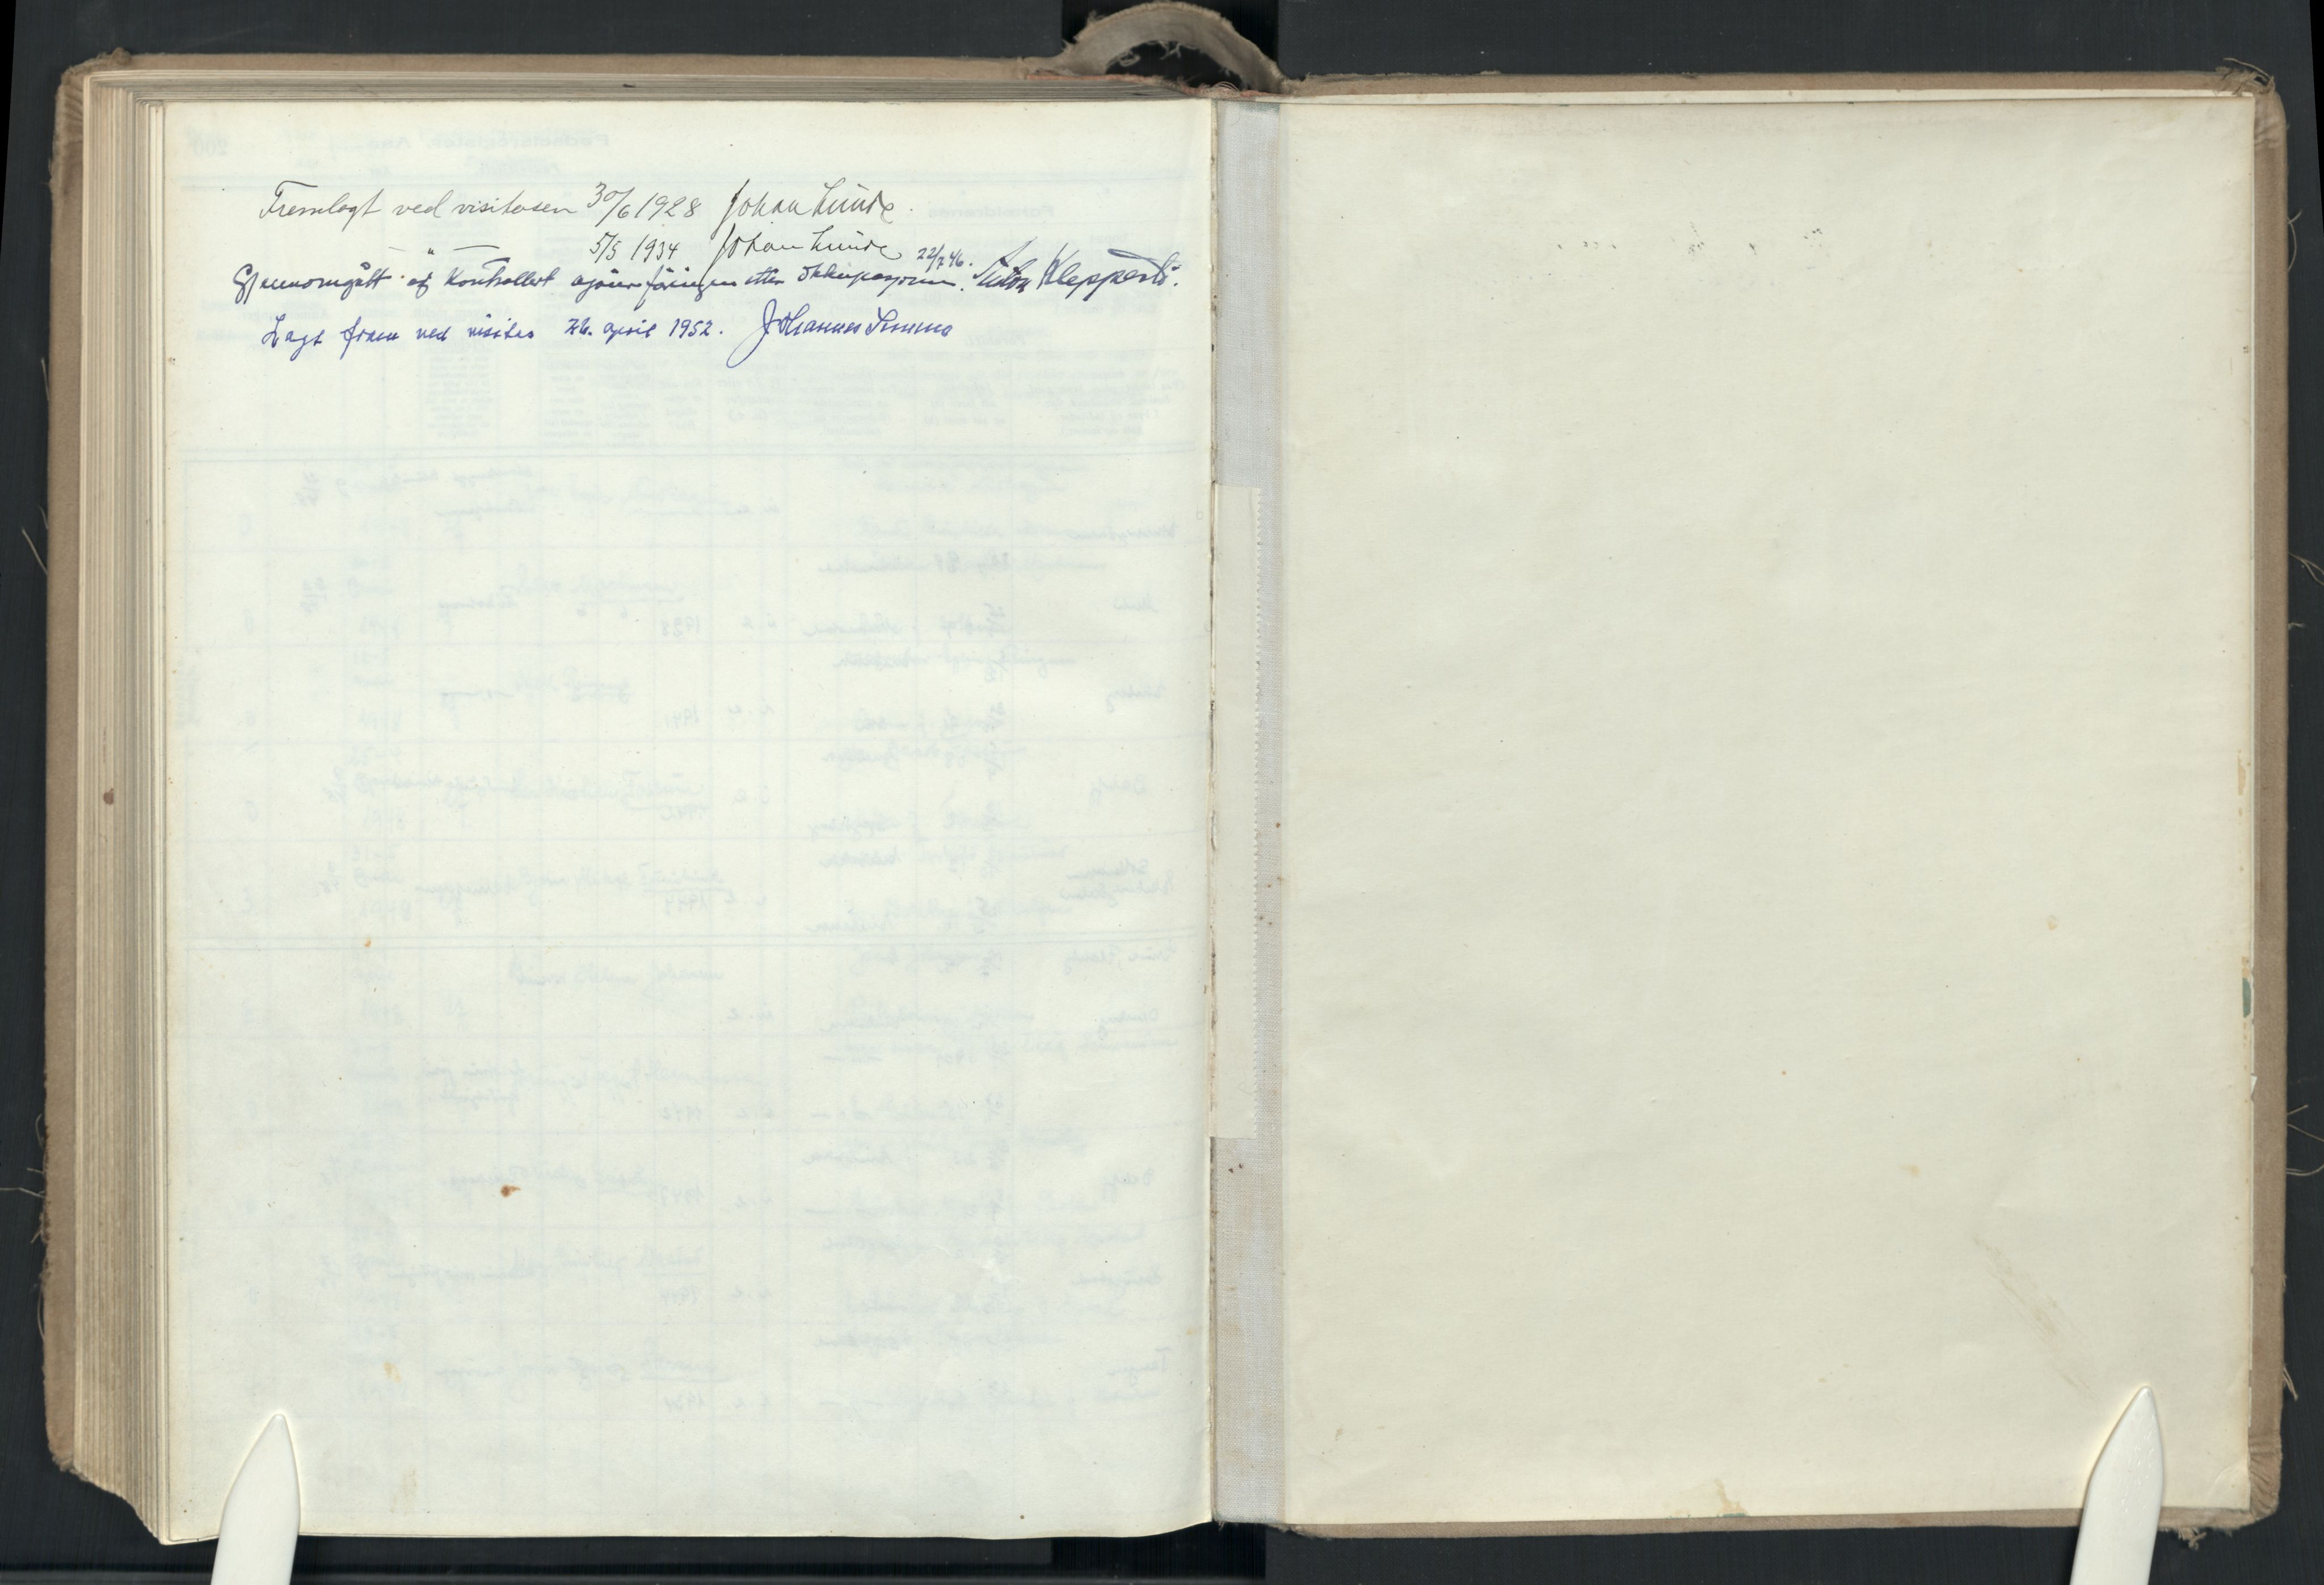 Fremlagt ved visitasen 30/6 1928 Johan Lunde.
— " — 5/5 1934 Johan Lunde
Gjennomgått og kontrollert ajourføringen etter okkupasjonen. 22/7 46.
Lagt fram ved visitas 26. april 1952. Johannes Smemo